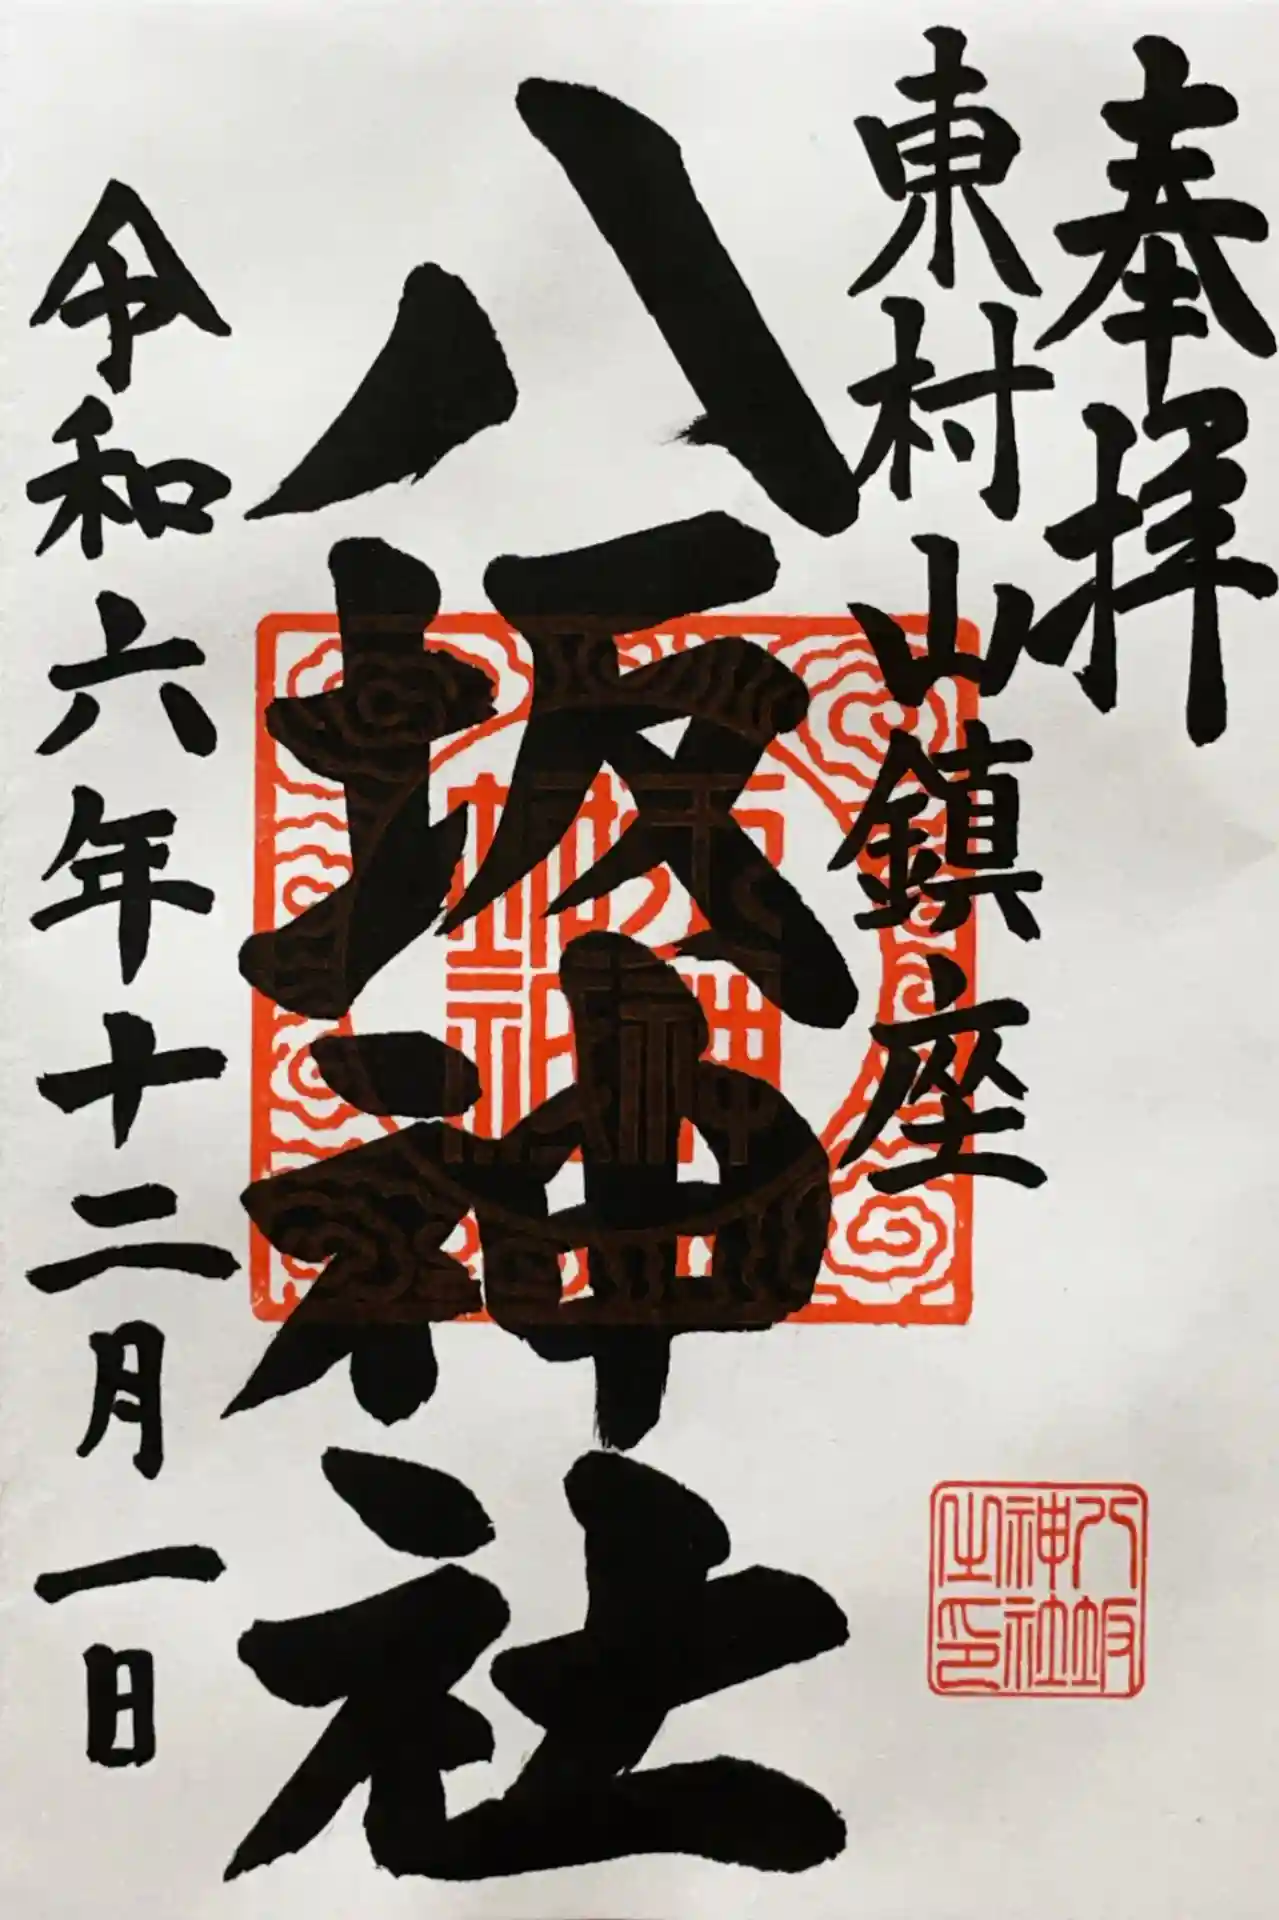 奉拝
東村山鎮座
八坂神社
令和六年十二月一日
八坂
神社
之印